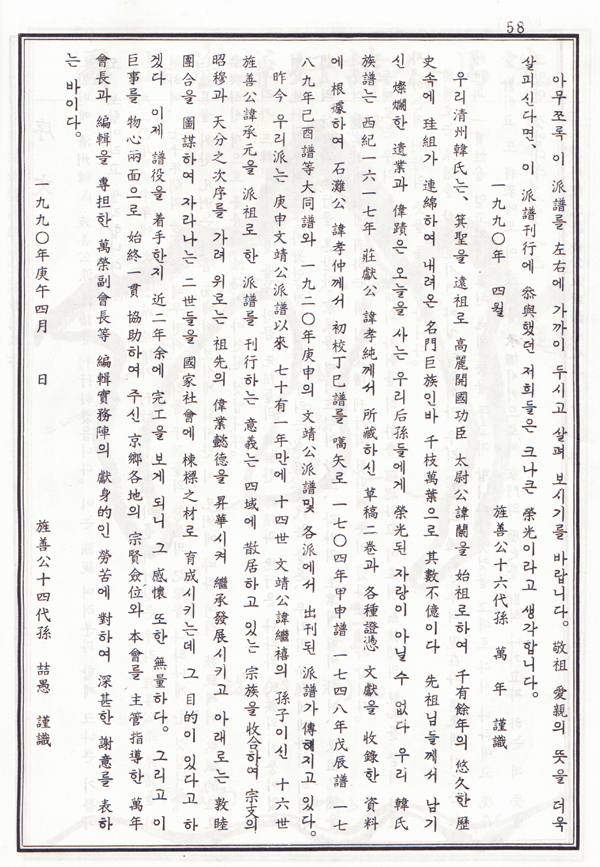 58
아무쪼록 이 派譜를 左右에 가까이 두시고 살펴 보시기를 바랍니다. 敬祖 愛親의 뜻을 더욱
살피신다면, 이 派譜刊行에 參與했던 저희들은 크나큰 榮光이라고 생각합니다.
一九九〇年 四월
旌善公十六代孫 萬 年 謹識
우리清州韓氏는、箕聖을 遠祖로 高麗開國功臣 太尉公諱蘭을 始祖로하여 千有餘年의 悠久한 歷
史속에 珪組가 連綿하여 내려온 名門巨族인바 千枝萬葉으로 其數不億이다 先祖님들께서 남기
신 燦爛한 遺業과 偉蹟은 오늘을 사는 우리后孫들에게 榮光된 자랑이 아닐 수 없다 우리 韓氏
族譜는 西紀一六一七年 莊獻公 諱孝純께서 所藏하신 草稿二卷과 各種證憑 文獻을 收錄한 資料
에 根據하여 石灘公 諱孝仲께서 初校丁巳譜를 嚆矢로 一七〇四年甲申譜 一七四八年戊辰譜 一七
八九年己酉譜等大同譜와 一九二〇年庚申의 文靖公派譜및 各派에서 出刊된 派譜가 傳해지고 있다。
昨今 우리派는 庚申文靖公派譜以來 七十有一年만에 十四世 文靖公諱繼禧의 孫子이신 十六世
旌善公諱承元을 派祖로 한 派譜를 刊行하는 意義는 四域에 散居하고 있는 宗族을 收合하여 宗支의
昭穆과 天分之次序를 가려 위로는 祖先의 偉業懿德을 昇華시켜 繼承發展시키고 아래로는 敦睦
團合을 圖謀하여 자라나는 二世들을 國家社會에 棟樑之材로 育成시키는데 그 目的이 있다고 하
겠다 이제 譜役을 着手한지 近二年余에 完工을 보게 되니 그 感懷 또한 無量하다。그리고 이
巨事를 物心兩面으로 始終一貫 協助하여 주신 京鄉各地의 宗賢僉位와 本會를 主管指導한 萬年
會長과 編輯을 專担한 萬榮副會長等 編輯實務陣의 獻身的인 勞苦에 對하여 深甚한 謝意를 表하
는 바이다。
一九九〇年庚午四月 日
旌善公十四代孫 喆愚 謹識